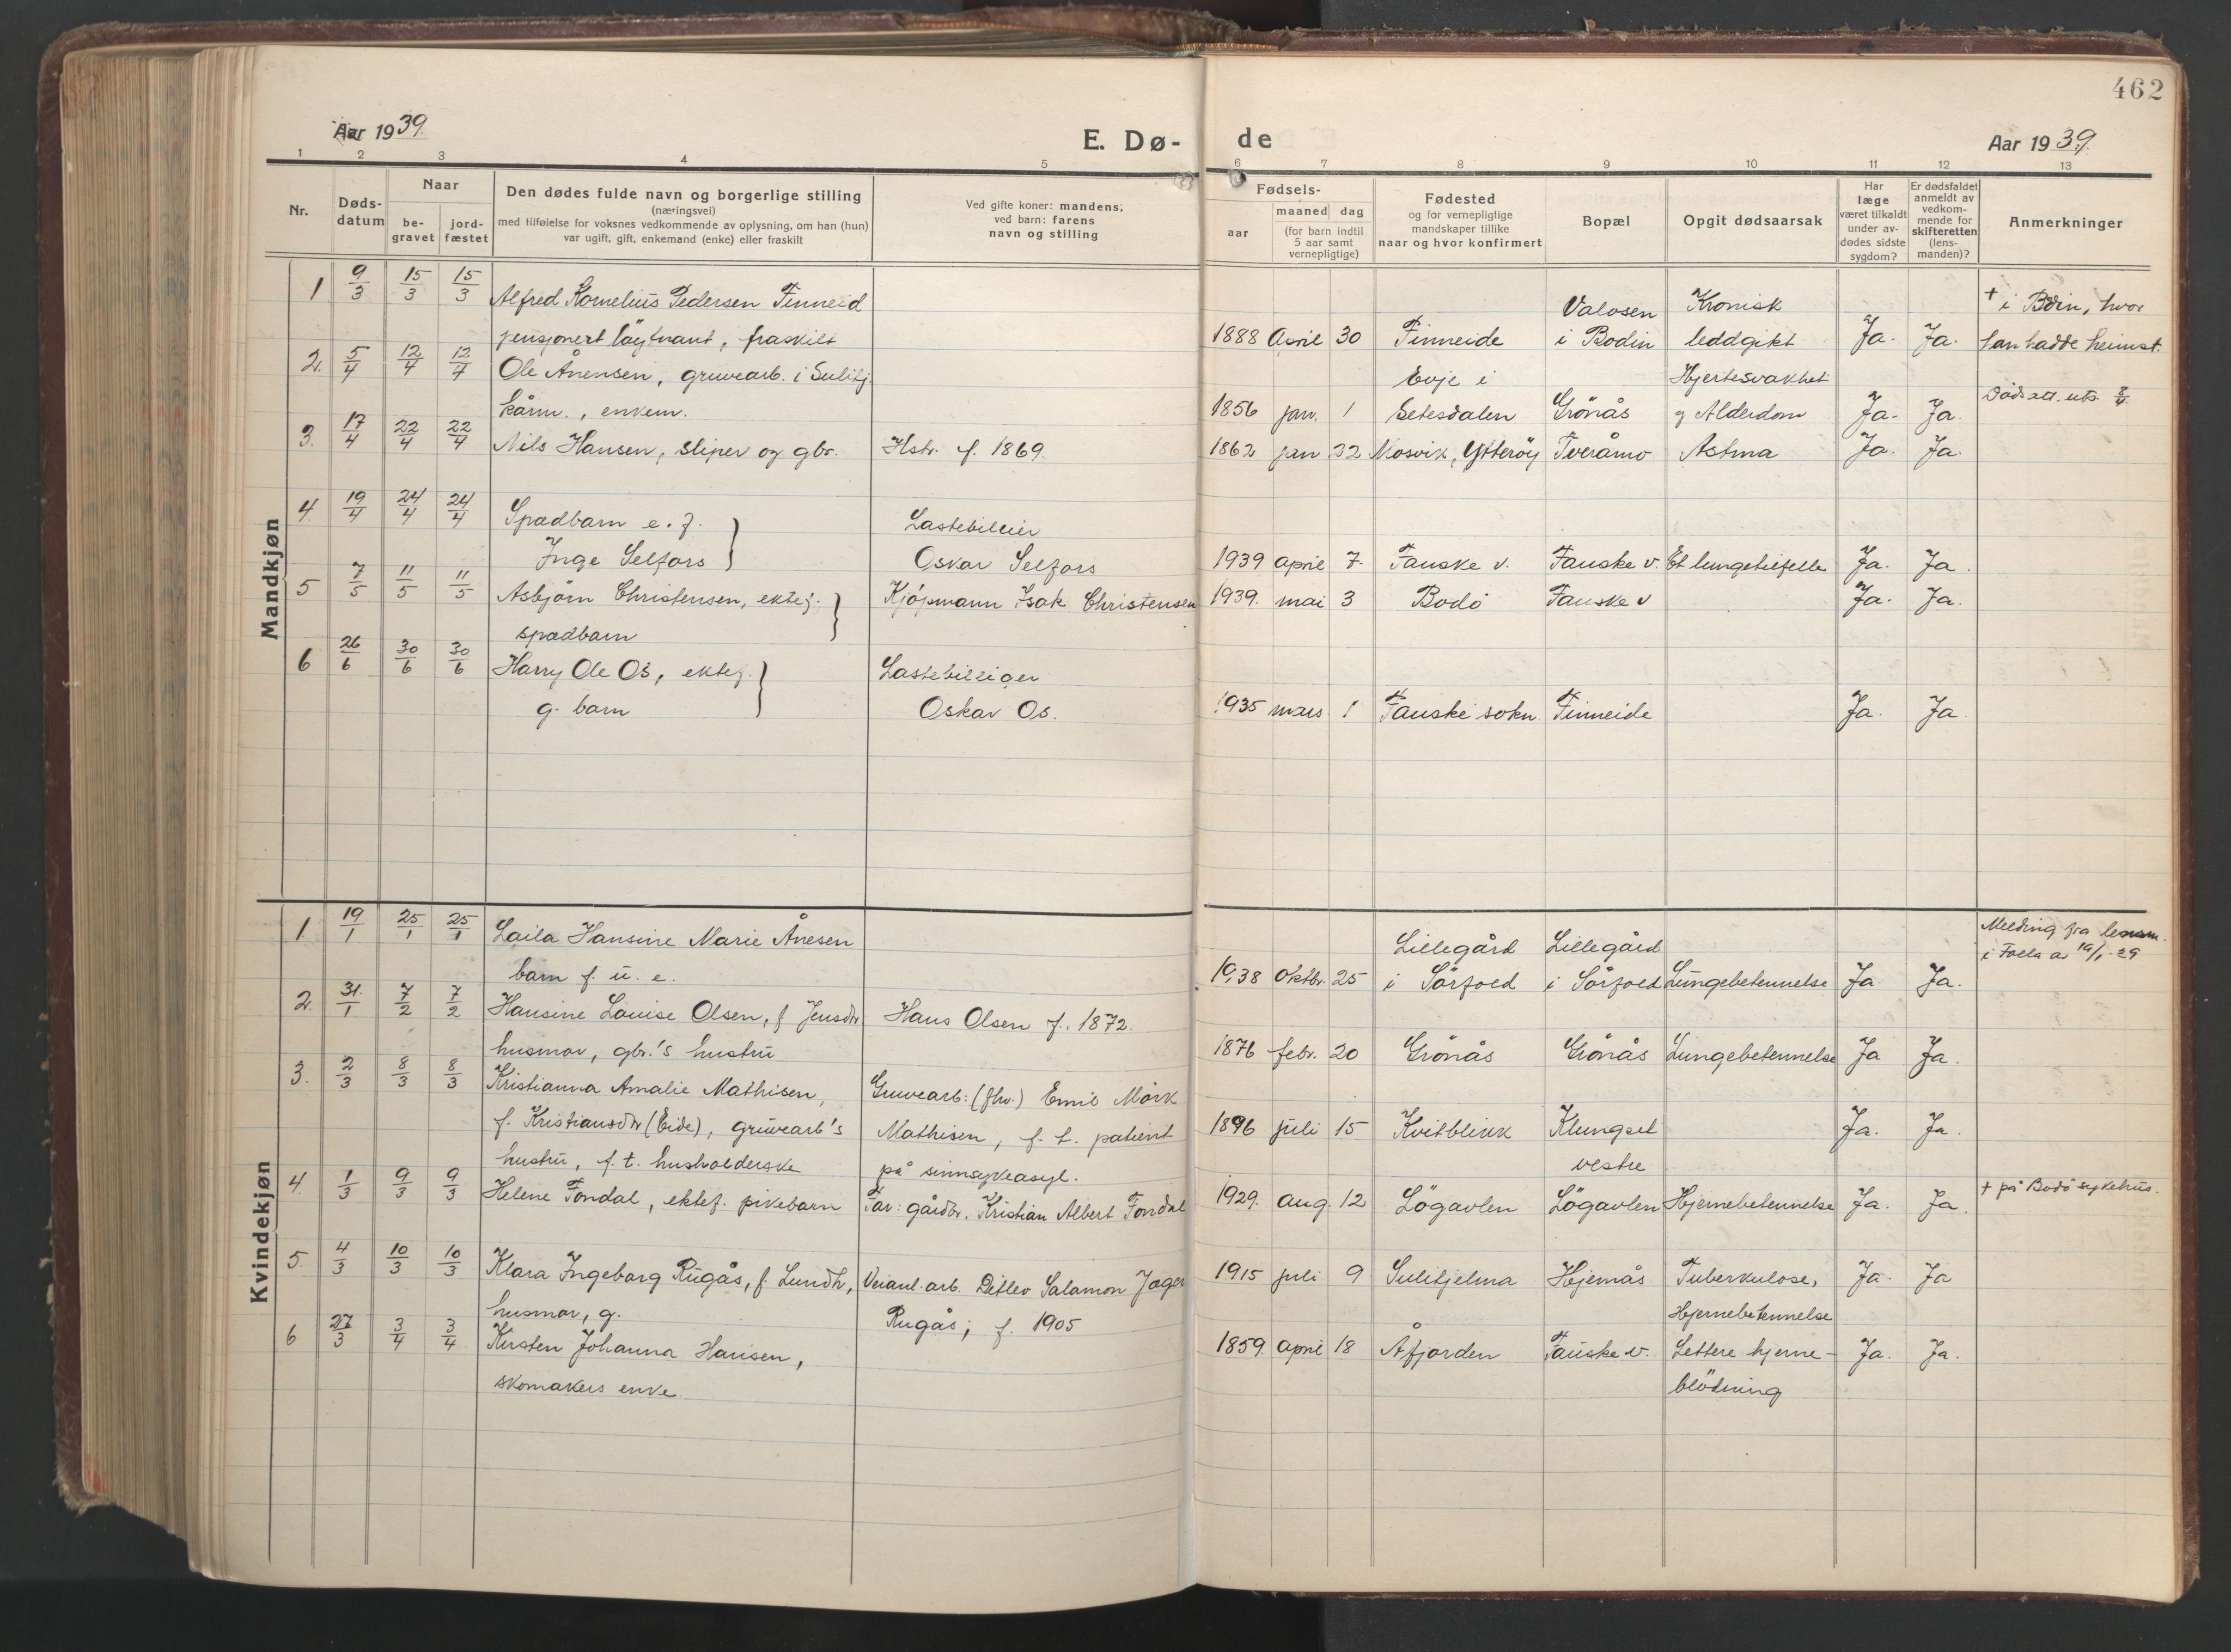 462
Aar 1939.
E. Dø-
de
Aar 1939.
1 2 3 4 5 6 7 8 9 10 11 12 13
Nr.
Døds-
datum
Naar
be-
gravet
jord-
fæstet
Den dødes fulde navn og borgerlige stilling
(næringsvei)
med tilføielse for voksnes vedkommende av oplysning, om han (hun)
var ugift, gift, enkemand (enke) eller fraskilt
Ved gifte koner: mandens,
ved barn: farens
navn og stilling
Fødsels-
aar
maaned dag
(for barn indtil
5 aar samt
vernepligtige)
Fødested
og for vernepligtige
mandskaper tillike
naar og hvor konfirmert
Bopæl
Opgit dødsaarsak
Har
læge
været tilkaldt
under av-
dødes sidste
sygdom?
Er dødsfaldet
anmeldt av
vedkom-
mende for
skifteretten
(lens-
manden)?
Anmerkninger
Mandkjøn
1 9/3 15/3 15/3 Alfred Kornelius Pedersen Finneid
pensjonert løytnant, fraskilt
1888 April 30 Finneide
Valosen
i Bodin
Kronisk
leddgikt
Ja. Ja.
+ i Bodin, hvor
han hadde heimst.
2. 5/4 12/4 12/4 Ole Ånensen, gruvearb. i Sulitj.
kårm., enkem.
1856 jan. 1
Evje i
Setesdalen
Grönås
Hjertesvakhet
og Alderdom
Ja. Ja.
Dödsatt. uts.
3. 17/4 22/4 22/4 Nils Hansen, sliper og gbr. Hstr. f. 1869.
1862 jan 22 Mosvik, Ytteröy Tveråmo Astma Ja. Ja.
4. 19/4 24/4 24/4 Spædbarn e. f.
Inge Selfors
Lastebileier
Oskar Selfors
1939 april 7. Fauske v. Fauske v. Et lungetilfelle Ja. Ja.
5 7/5 11/5 11/5 Asbjörn Christensen, ektef.
spædbarn
Kjöpmann Isak Christensen
1939. mai 3 Bodö Fauske v Ja. Ja.
6 26/6 30/6 30/6 Harry Ole Os, ektef.
g. barn
Lastebileiger
Oskar Os.
1935 mars 1 Fauske sokn Finneide Ja. Ja
Kvindekjøn
1 19/1 25/1 25/1 Laila Hansine Marie Ånesen
barn f. u. e.
1938 oktbr. 25
Lillegård
i Sörfold
Lillegård
i Sörfold
Lungebetennelse Ja Ja.
Melding fra lensm.
2. 31./1 7/2 7/2 Hansine Louise Olsen, f. Jensdtr
husmor, gbr.'s hustru
Hans Olsen f. 1872.
1876 febr. 20 Grönås Grönås Lungebetennelse Ja Ja.
3. 2/3 8/3 8/3 Kristianna Amalie Mathisen,
f. Kristiansdtr (Eide), gruvearb's
hustru, f. t. husholderske
Gruvearb: (fhv.) Emil Mörk
Mathisen, f. t. patient
på sinnsykeasyl.
1896 juli 15 Kvitblikk
Klungset
vestre
Ja. Ja.
4. 1/3 9/3 9/3 Helene Fondal, ektef. pikebarn
Far: gårdbr. Kristian Albert Fondal
1929. aug. 12 Lögavlen Lögavlen Hjernebetennelse Ja. Ja.
+ på Bodö sykehus.
5. 4/3 10/3 10/3 Klara Ingeborg Rugås, f. Lundh,
husmor, g.
Veianl. arb. Detlev Salamon Jager
Rugås, f. 1905
1915 juli 9 Sulitjelma Hjemås
Tuberkulose,
Hjernebetennelse
Ja. Ja
6 27/3 3/4 3/4 Kirsten Johanna Hansen,
skomakers enke.
1859. april 18 Åfjorden Fauske v.
Lettere hjerne-
blödning
Ja. Ja.